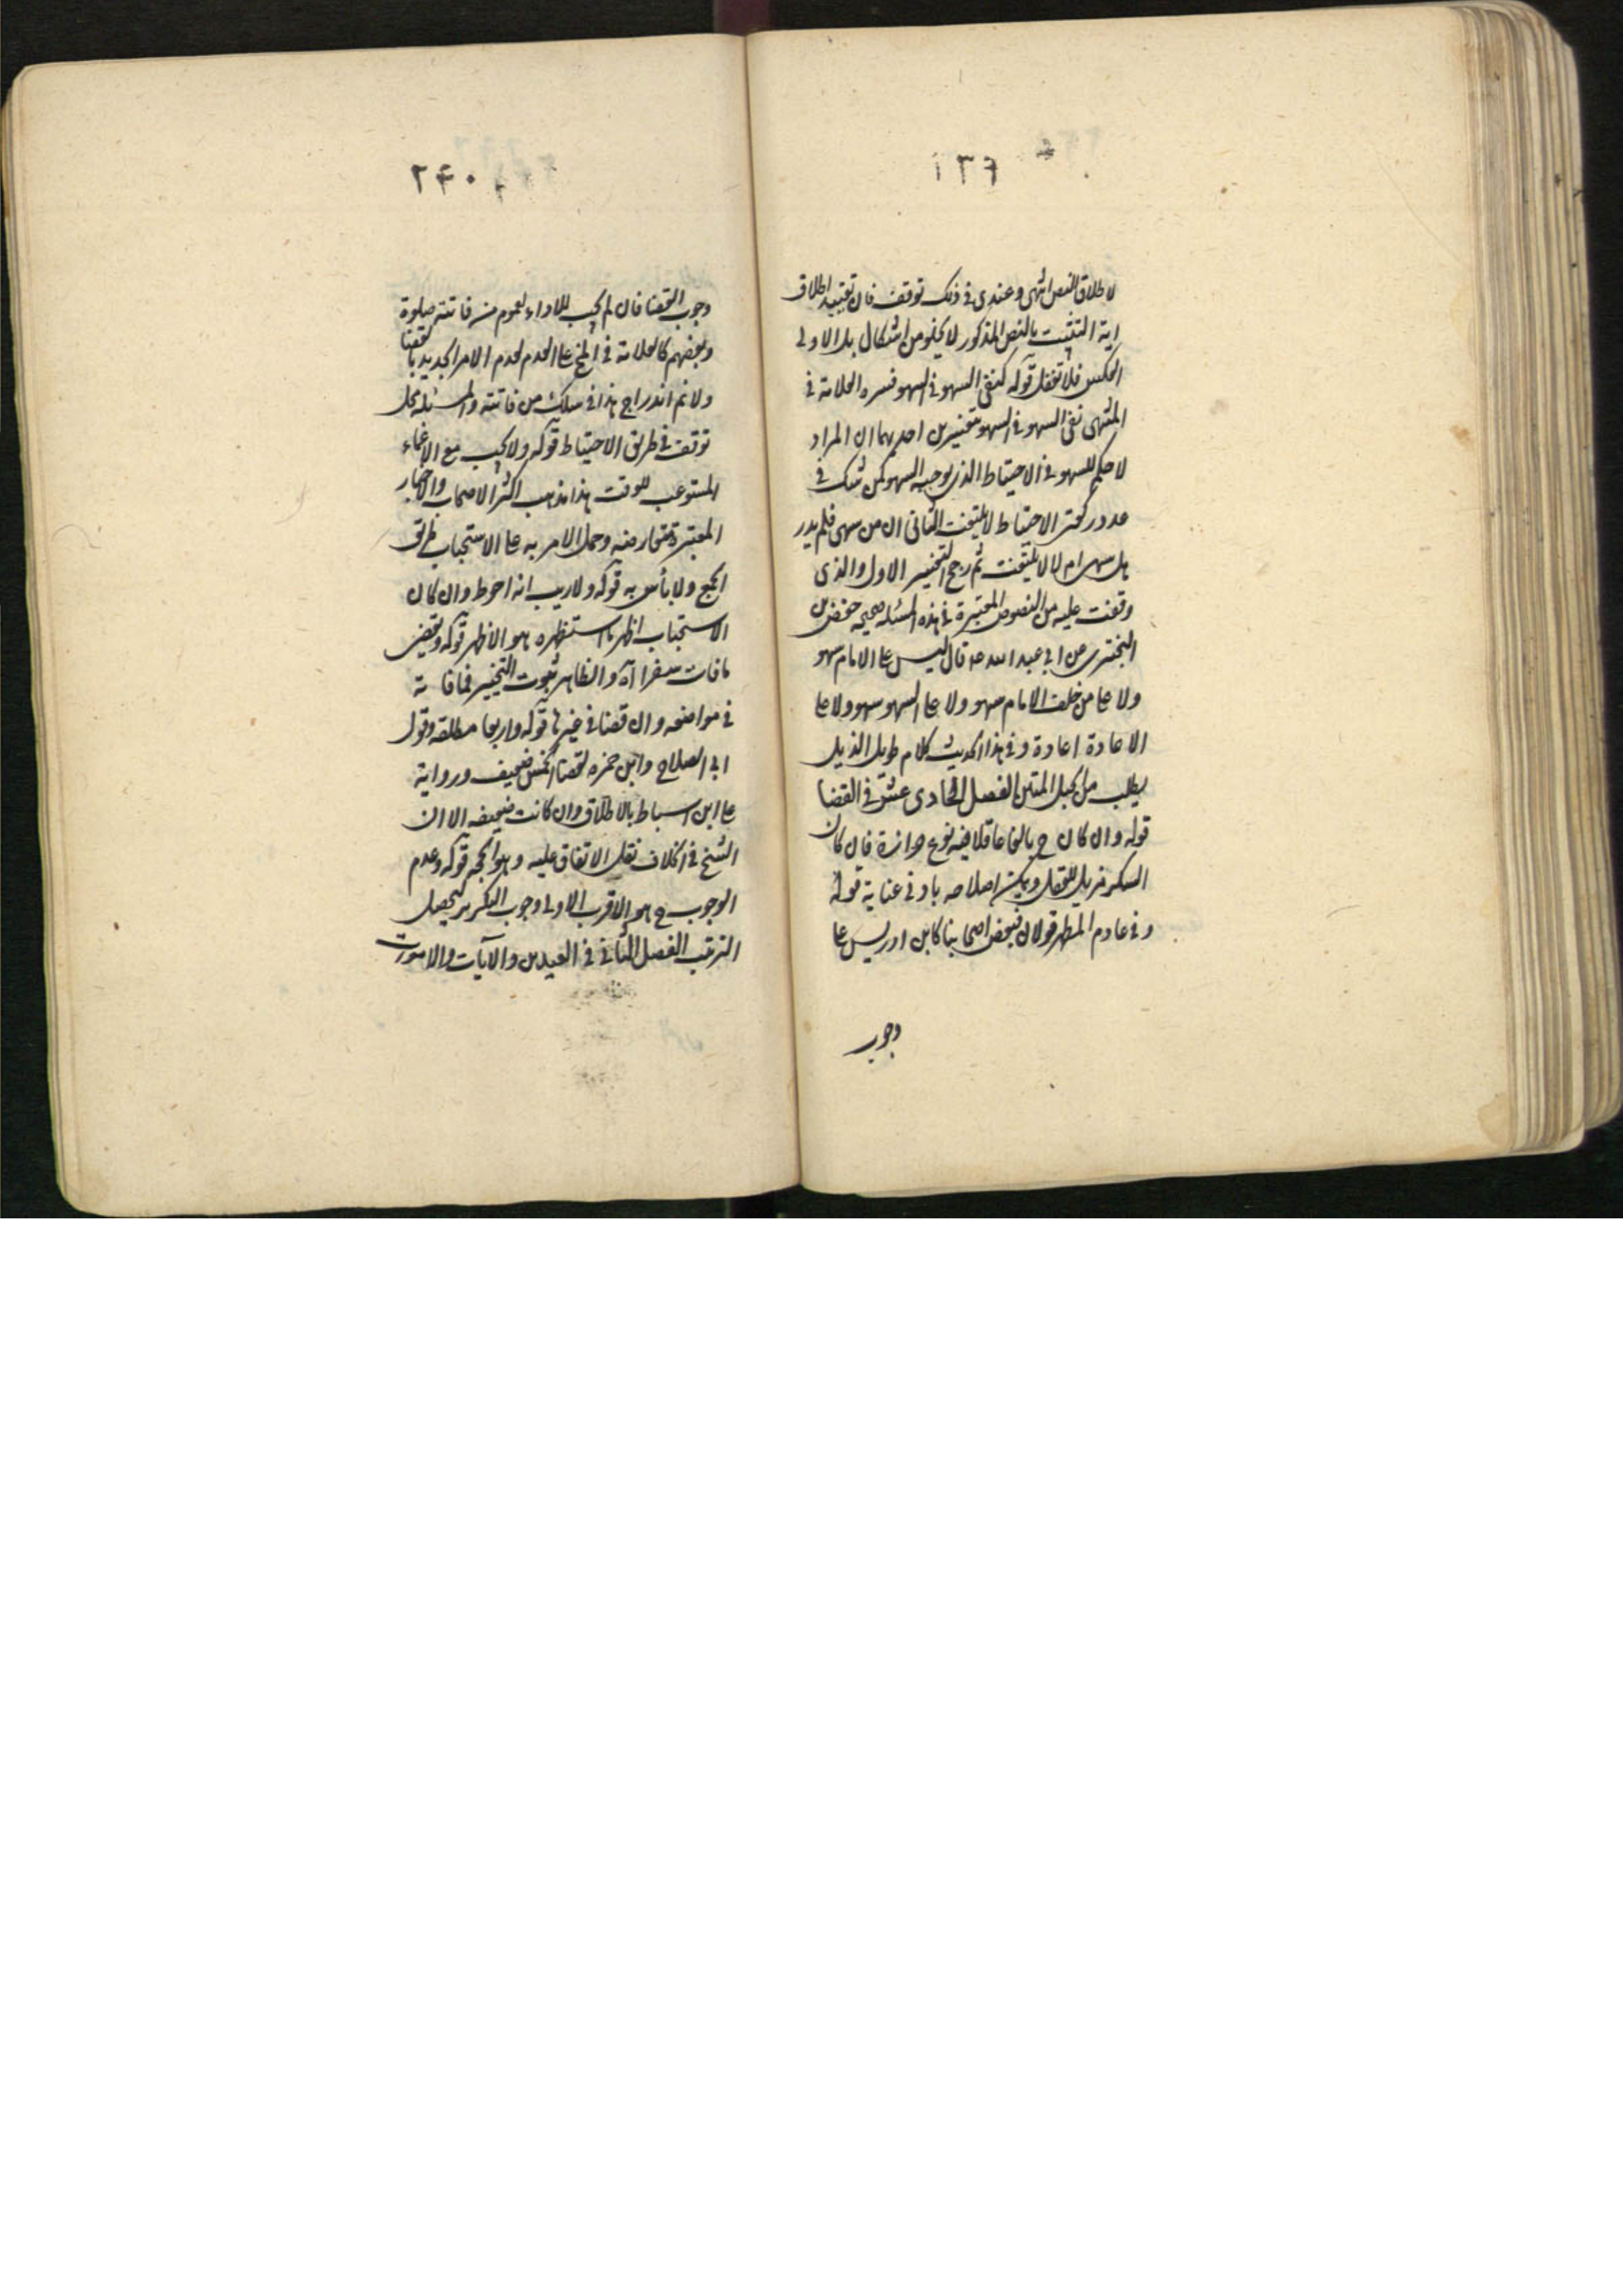 ١٣٩
لاطلاق النص انتهى وعندى فى ذلك توقف فان تقييد اطلاق
اية التثبت بالنص المذكور لا يخلو من اشكال بل الاولى
العكس فلا تغفل قوله كنفى السهو فى السهو فسره العلامة فى
المنتهى نفى السهو فى السهو بتفسيرين احدهما ان المراد
لا حكم للسهو فى الاحتياط الذى يوجبه السهو كمن شك فى
عدد ركعتى الاحتياط لا يلتفت الثانى ان من سهى فلم يدر
هل سهى ام لا لا يلتفت ثم رجح التفسير الاول والذى
وقفت عليه من النصوص المعتبرة فى هذه المسئله صحيحه حفص بن
البخترى عن ابى عبد الله ع قال ليس على الامام سهو
ولا على من خلف الامام سهو ولا على السهو سهو ولا على
الاعادة اعادة وفى هذا الحديث كلام طويل الذيل
يطلب من الحبل المتين الفصل الحادى عشر فى القضا
قوله وان كان ح بالغا عاقلا فيه نوع حزازة فان كان
السكر مزيل للعقل ويمكن اصلاحه بادنى عناية قوله
وفى عادم المطهر قولان فبعض اصحابنا كابن ادريس على
وجوب
٢٤٠
وجوب القضا فان لم يجب للاداء لعموم من فاتته صلوة
وبعضهم كالعلامة فى المنتهى على العدم لعدم الامر الجديد بالقضا
ولانم اندراج هذا فى سلك من فاتته والمسئله محل
توقف فى طريق الاحتياط قوله ولا يجب مع الاغماء
المستوعب للوقت هذا مذهب اكثر الاصحاب والاخبار
المعتبرة متعارضه وحمل الامر به على الاستحباب طريق
الجمع ولا بأس به قوله ولا ريب انه احوط وان كان
الاستحباب اظهر ما استظهره هو الاظهر قوله ويقضى
ما فات سفرا آه والظاهر ثبوت التخيير فيما فاته
فى مواضعه وان قضا فى غيرها قوله واربعا مطلقه وقول
ابى الصلاح وابن حمزه لقضا الخمس ضعيف ورواية
على ابن اسباط بالاطلاق وان كانت ضعيفه الا ان
الشيخ فى الخلاف نقل الاتفاق عليه وهو الحجه قوله وعدم
الوجوب ح هو الاقرب الاولى وجوب التكرير ليحصل
الترتيب الفصل الثانى فى العيدين والآيات والاموات